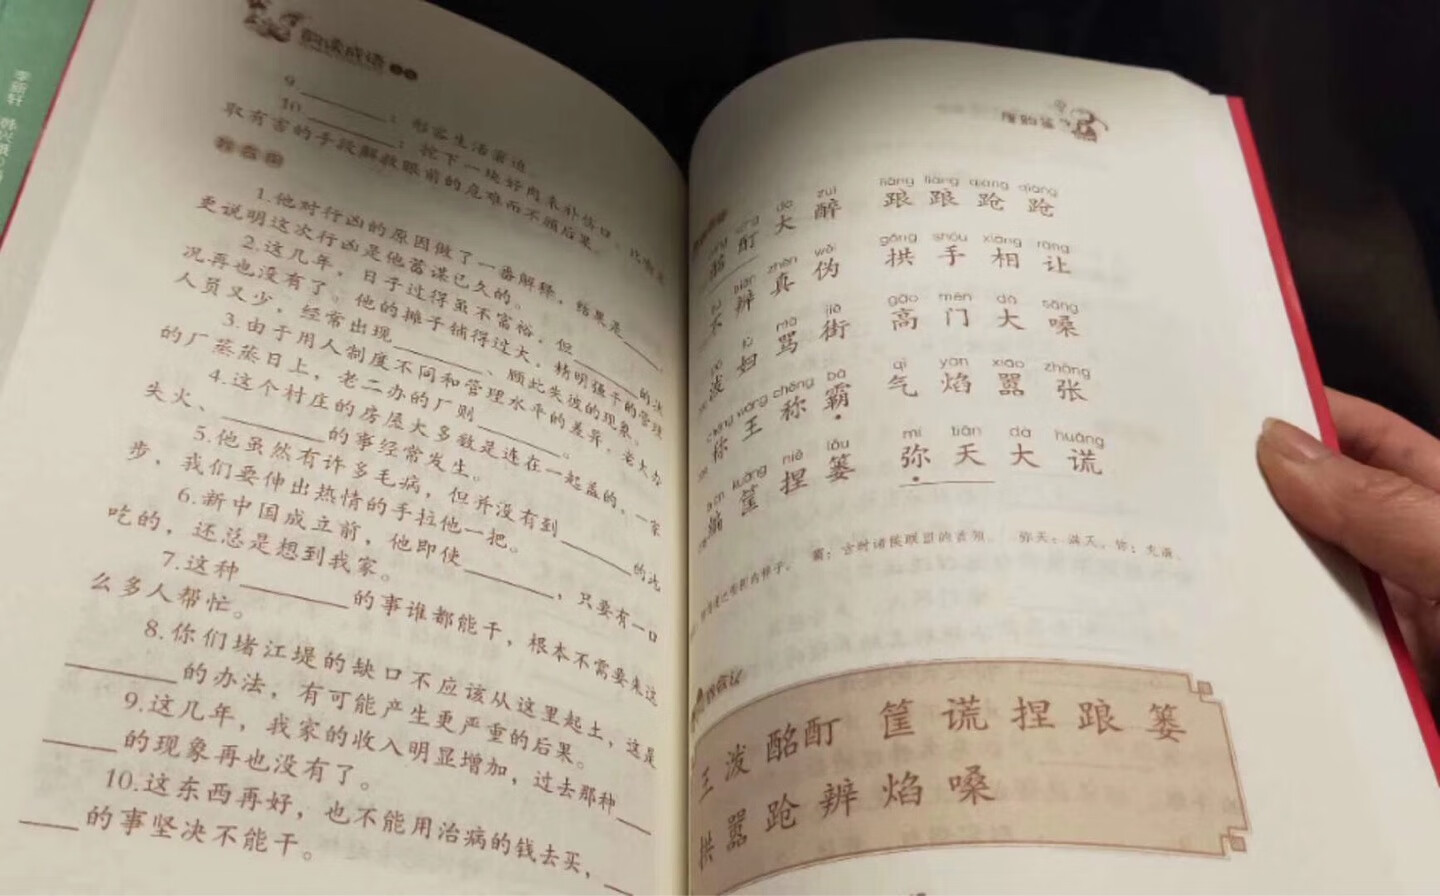 韵读成语
9.________：形容生活窘迫。
10.________：挖下一块好肉来补伤口。比喻采
取有害的手段解救眼前的危难而不顾后果。
我会填
1.他对行凶的原因做了一番解释，结果是____，
更说明这次行凶是他蓄谋已久的。
2.这几年，日子过得虽不富裕，但____的状
况再也没有了。他的摊子铺得过大，精明强干的管理
人员又少，经常出现____、顾此失彼的现象。
3.由于用人制度不同和管理水平的差异，老大办
的厂蒸蒸日上，老二办的厂则____。
4.这个村庄的房屋大多数是连在一起盖的，一家
失火、____的事经常发生。
5.他虽然有许多毛病，但并没有到____的地
步，我们要伸出热情的手拉他一把。
6.新中国成立前，他即使____，只要有一口
吃的，还总是想到我家。
7.这种____的事谁都能干，根本不需要来这
么多人帮忙。
8.你们堵江堤的缺口不应该从这里起土，这是
____的办法，有可能产生更严重的后果。
9.这几年，我家的收入明显增加，过去那种__
____的现象再也没有了。
10.这东西再好，也不能用治病的钱去买，__
____的事坚决不能干。
dà zuì liàng liàng qiàng qiàng
酩酊大醉 踉踉跄跄
biàn zhēn wěi gǒng shǒu xiāng ràng
不辨真伪 拱手相让
fù mà jiē gāo mén dà sǎng
泼妇骂街 高门大嗓
chēng wáng chēng bà qì yàn xiāo zhāng
称王称霸 气焰嚣张
biān kuāng niē lǒu mí tiān dà huǎng
编筐捏篓 弥天大谎
霸：古时诸侯联盟的首领。 弥天：满天。
我会认
泼 酩酊 筐 谎 捏 踉 篓
拱 嚣 跄 辨 焰 嗓